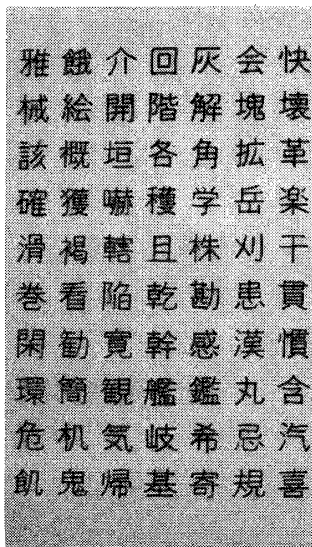 雅餓介回灰会快
械絵開階解塊壊
該概垣各角拡革
確獲嚇穫学岳楽
滑褐轄且株刈干
巻看陥乾勘患貫
閑勧寛幹感漢慣
環簡観艦鑑丸含
危机気岐希忌汽
飢鬼帰基寄規喜